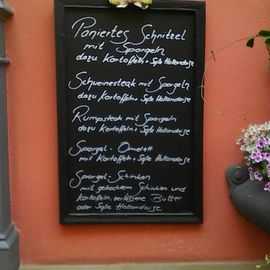 Paniertes Schnitzel
mit Spargeln
dazu Kartoffeln + Soße Hollandaise
Schweinesteak mit Spargeln
dazu Kartoffeln + Soße Hollandaise
Rumpsteak mit Spargeln
dazu Kartoffeln + Soße Hollandaise
Spargel - Omelett
mit Kartoffeln + Soße Hollandaise
Spargel - Schinken
mit gekochtem Schinken und
Kartoffeln, zerlassene Butter
oder Soße Hollandaise